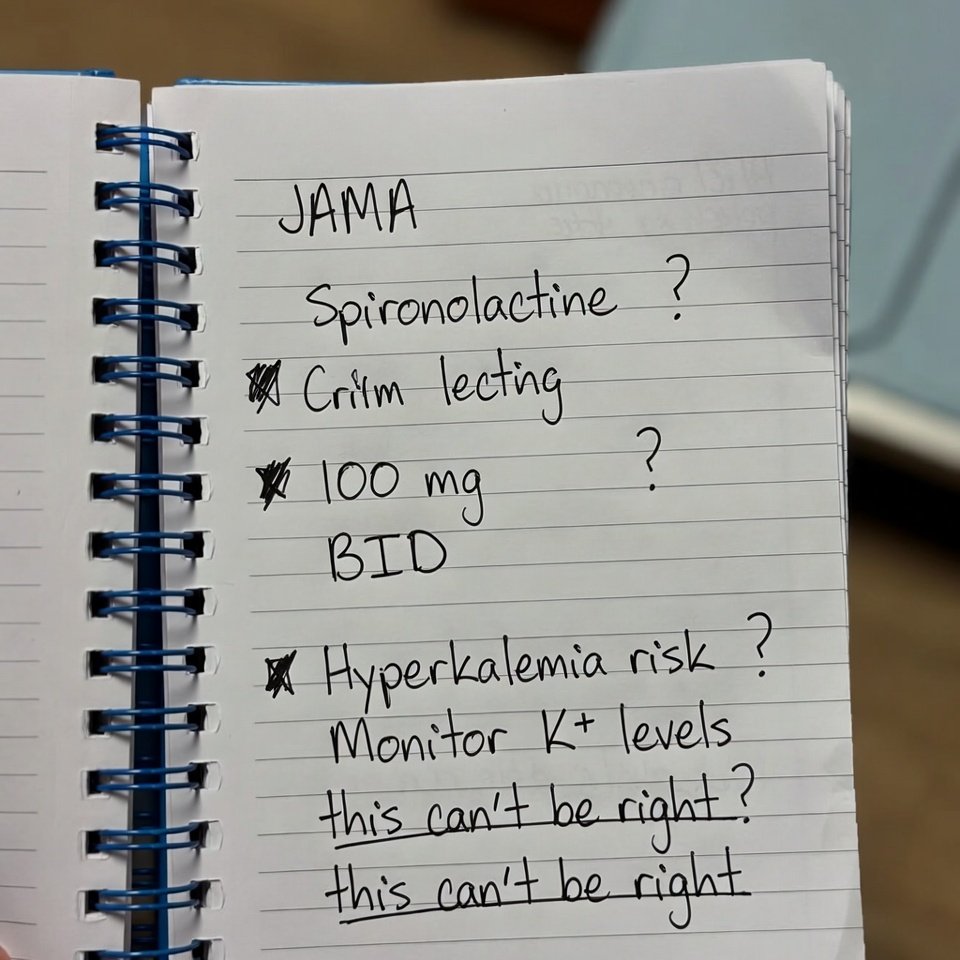 JAMA
Spironolactine ?
Criim lecting
100 mg ?
BID
Hyperkalemia risk ?
Monitor K+ levels
this can't be right?
this can't be right